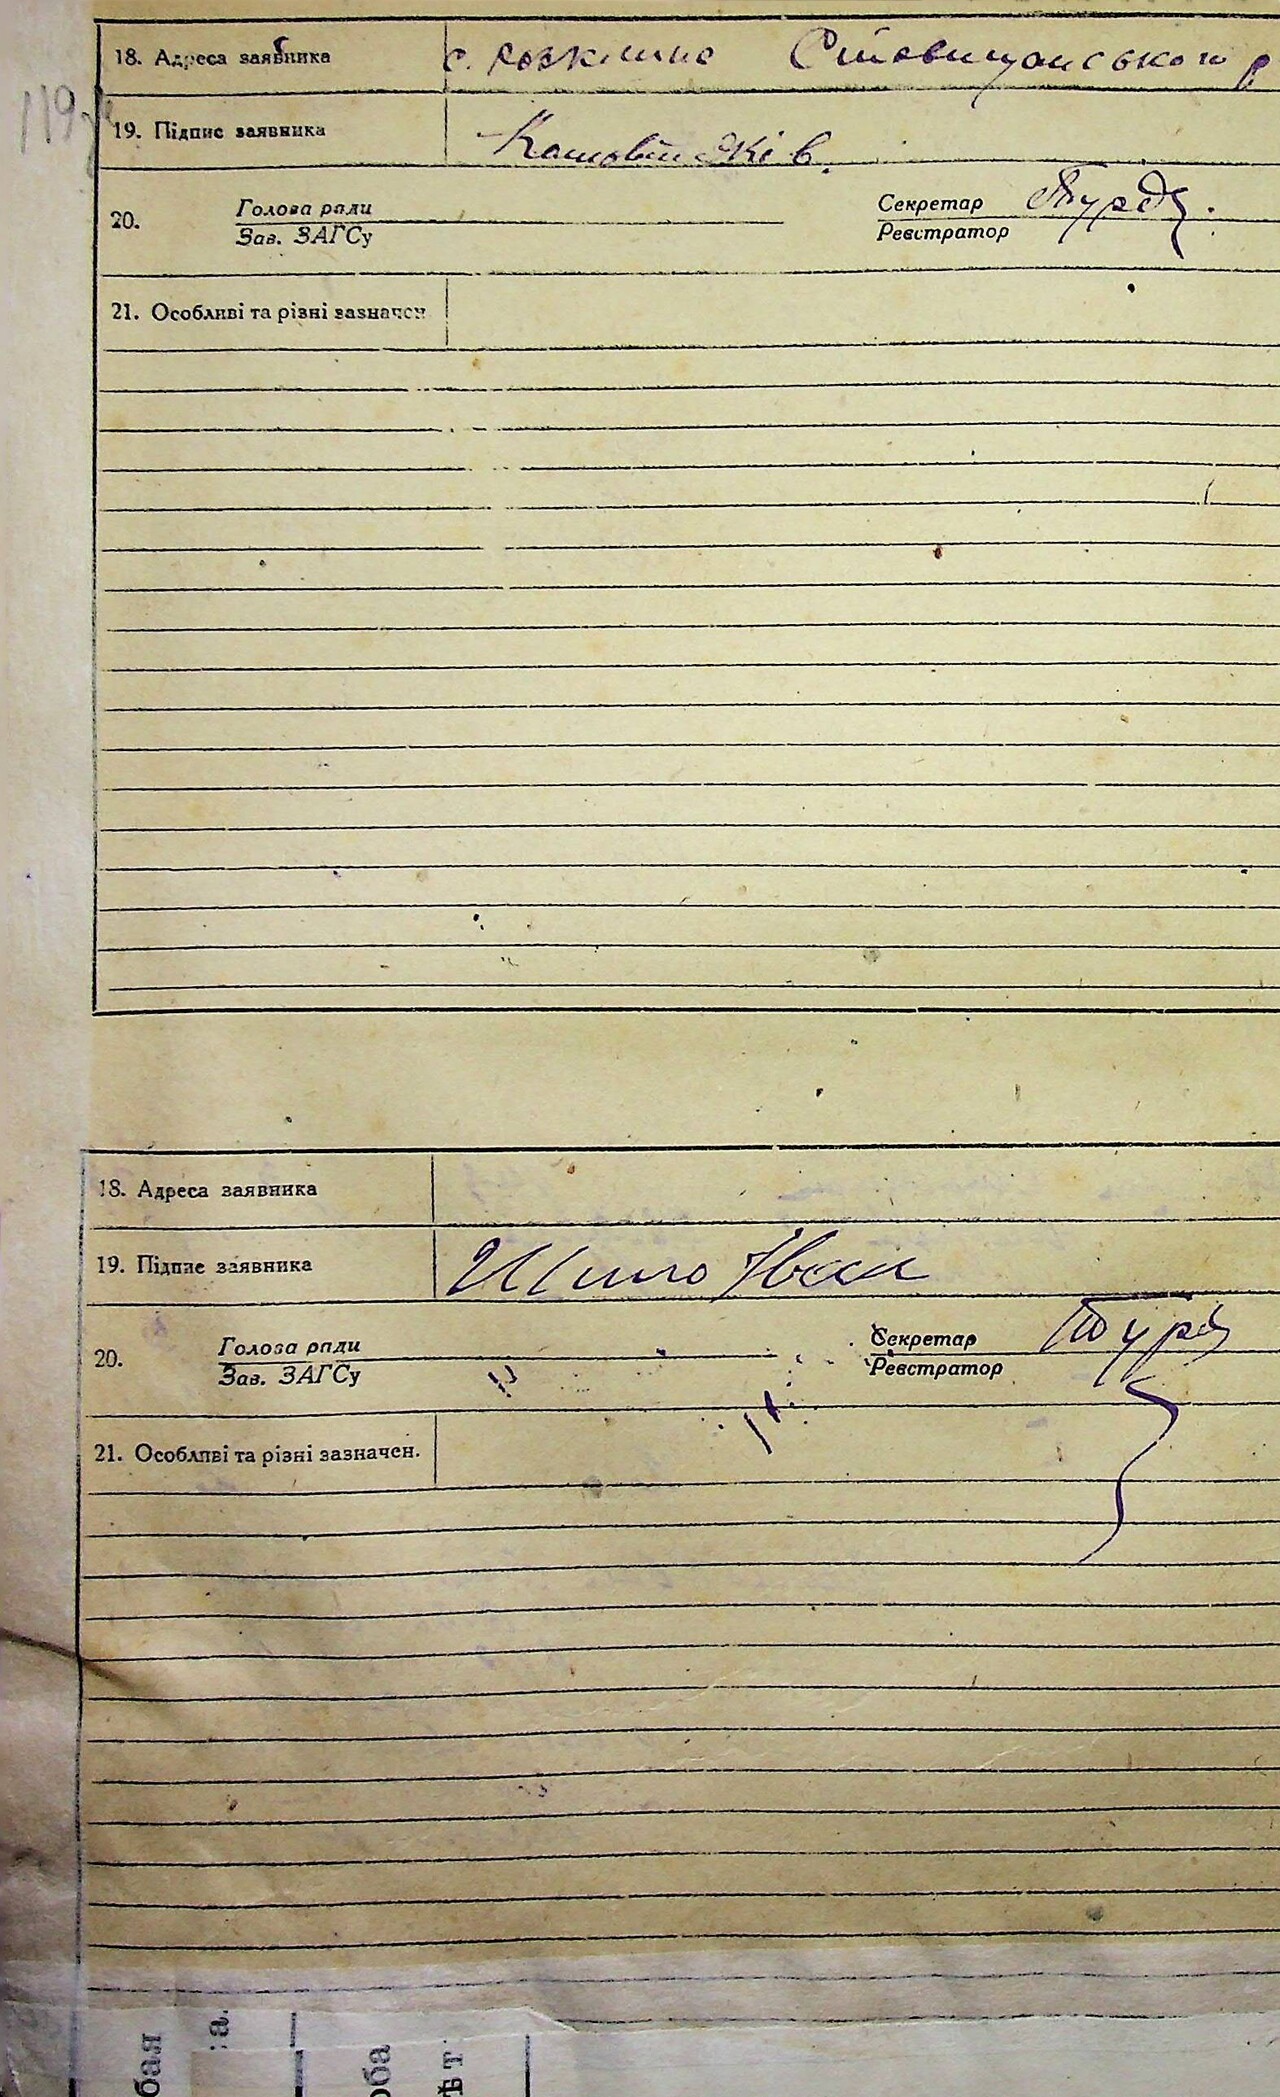 18. Адреса заявника с. Розкішна Ставищанського р
119
19. Підпис заявника Яків
20. Голова ради Секретар
Зав. ЗАГСу Реєстратор
21. Особливі та різні зазначен
18. Адреса заявника
19. Підпис заявника Шило Іван
20. Голова ради Секретар
Зав. ЗАГСу Реєстратор
21. Особливі та різні зазначен.
бая
ѣт